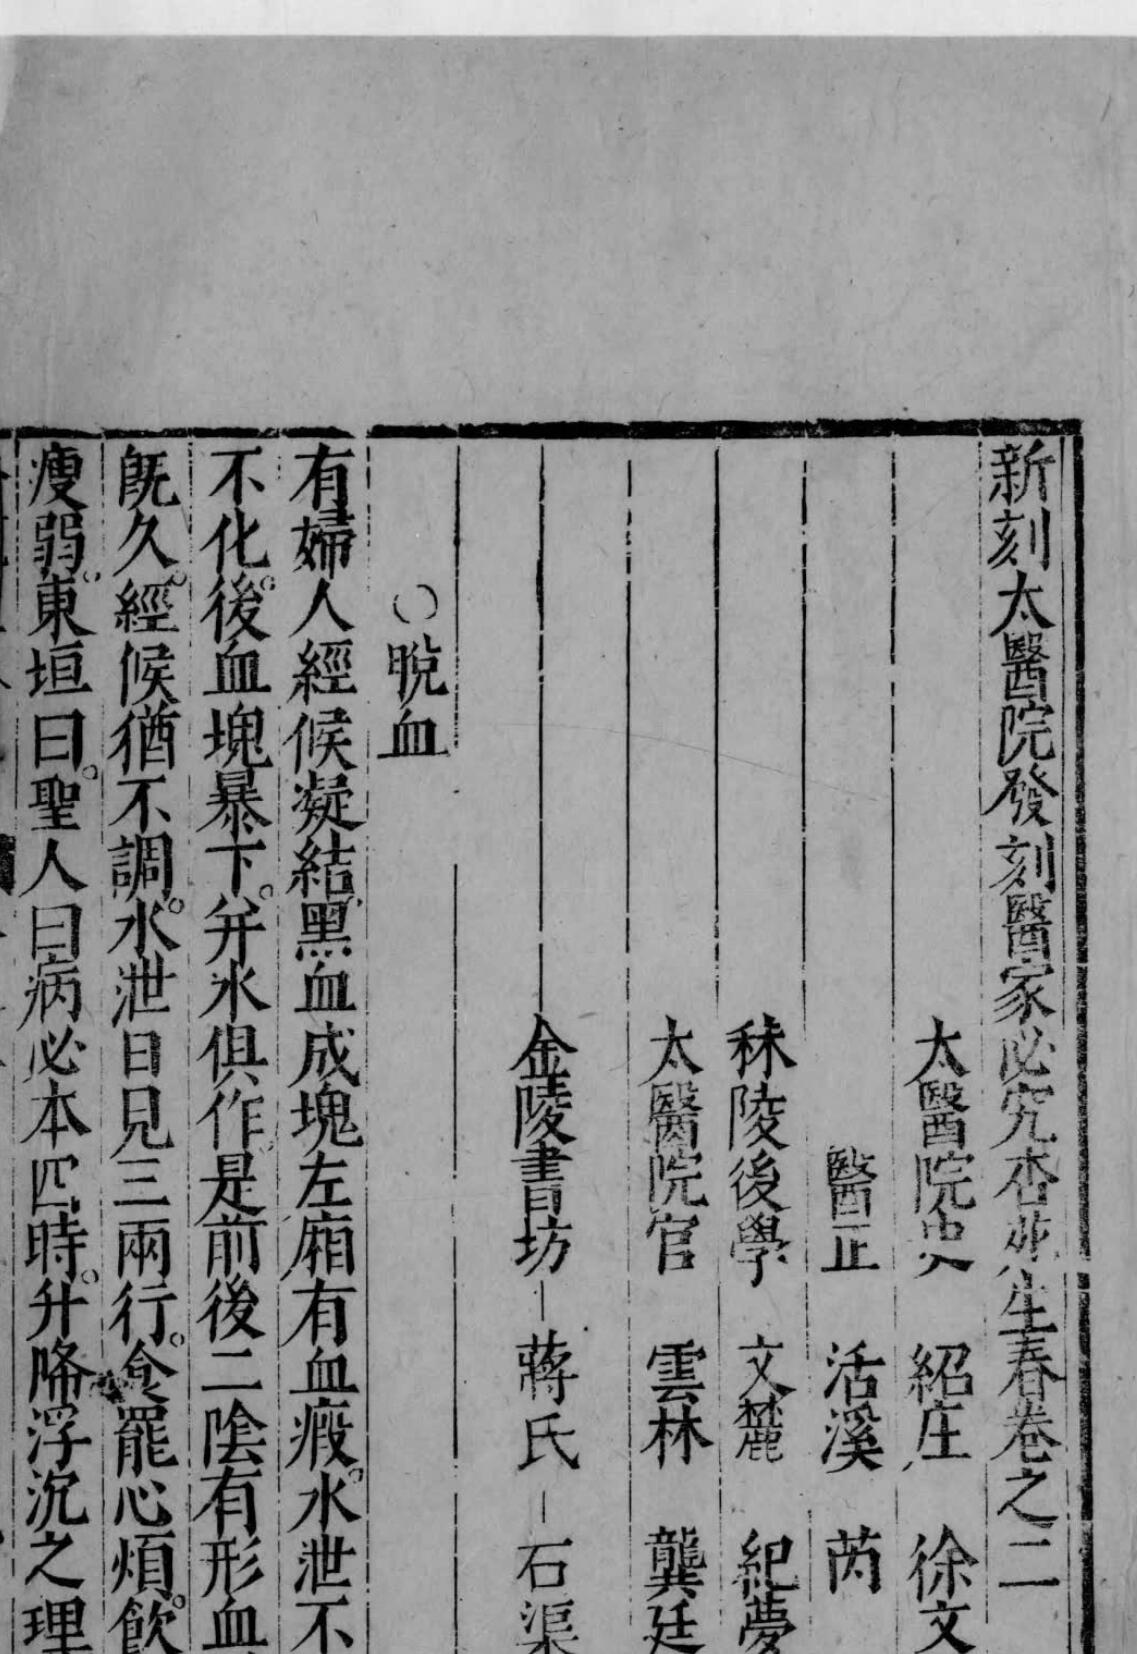 新刻太醫院發刻醫家必究杏苑生春卷之二
太醫院吏 紹庄 徐文
醫正 活溪 芮
秣陵後學 文麓 紀夢
太醫院官 雲林 龔廷
金陵書坊 蔣氏 石渠
○脫血
有婦人經候凝結黑血成塊左廂有血瘕水泄不
不化後血塊暴下并水俱作是前後二陰有形血
既久經候猶不調水泄日見三兩行食罷心煩飲
瘦弱東垣曰聖人曰病必本四時升降浮沉之理